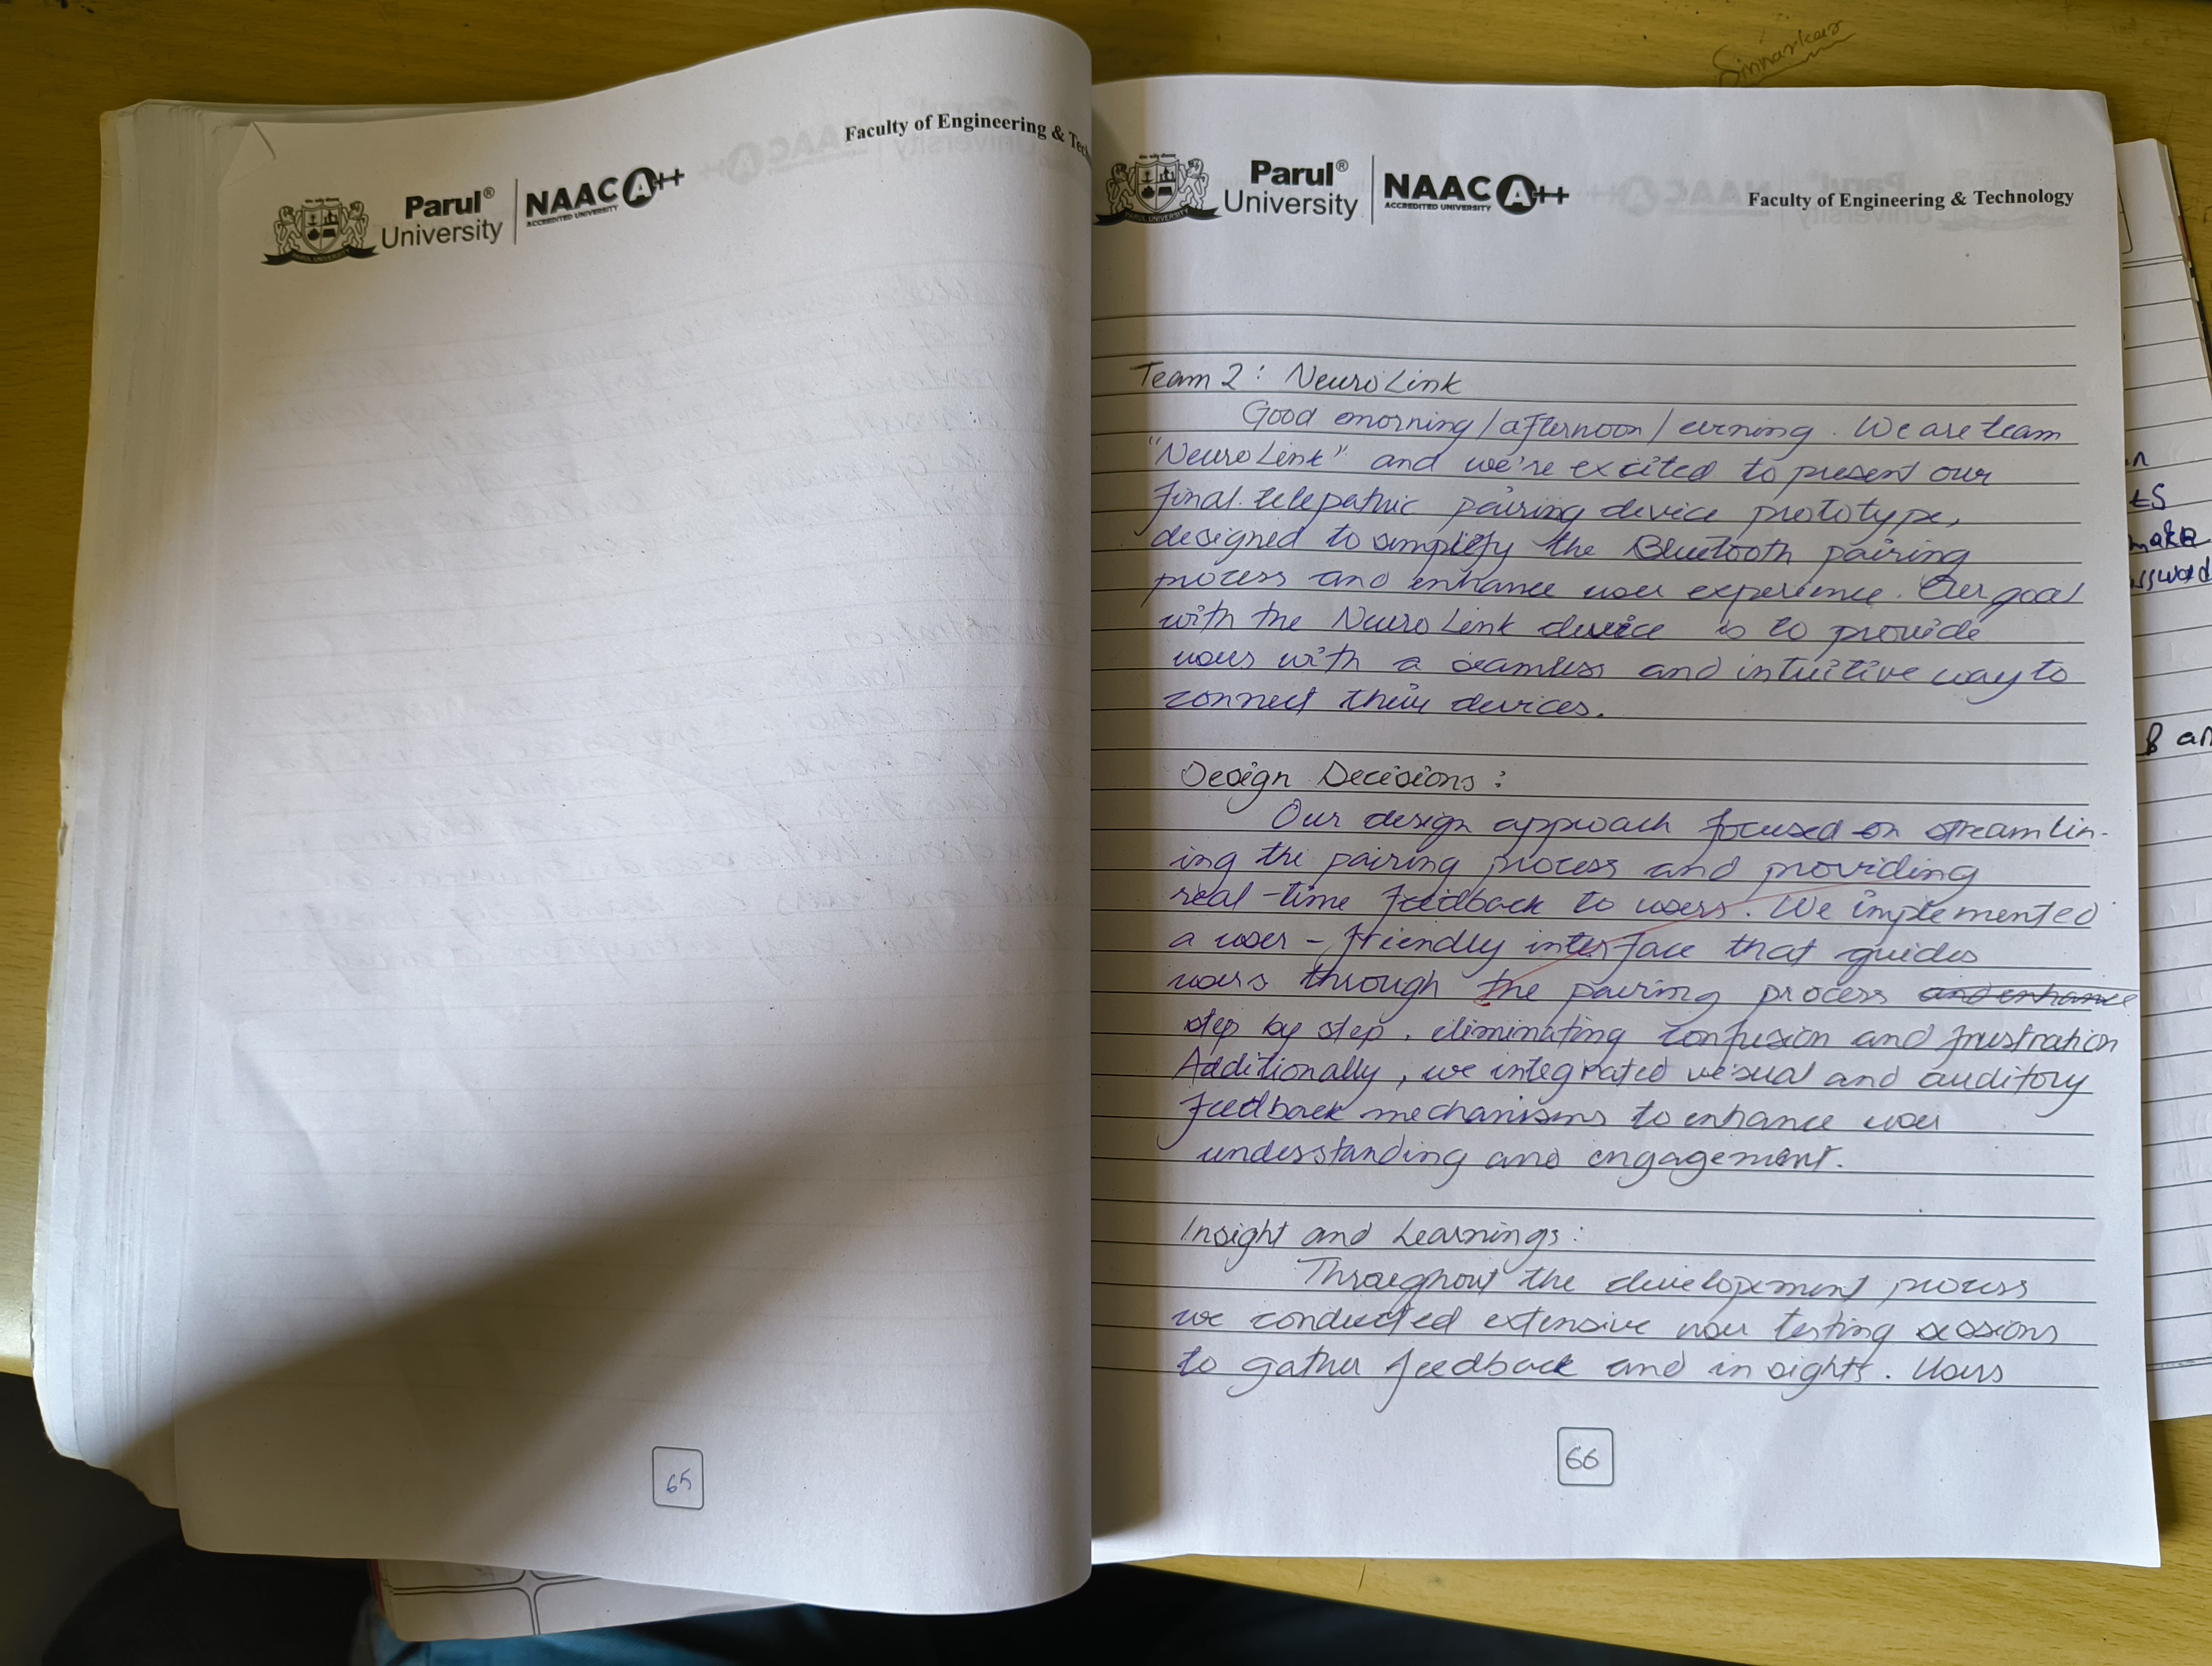 Sinnarkar
Faculty of Engineering & Tech
Parul®
University
NAAC A++
ACCREDITED UNIVERSITY
PARUL UNIVERSITY
65
Parul®
University
NAAC A++
ACCREDITED UNIVERSITY
PARUL UNIVERSITY
Faculty of Engineering & Technology
Team 2: NeuroLink
Good emorning/afternoon/evening. We are team
"NeuroLink" and we're excited to present our
final telepathic pairing device prototype,
designed to simplify the Bluetooth pairing
process and enhance user experience. Our goal
with the NeuroLink device is to provide
users with a seamless and intuitive way to
connect their devices.
Design Decisions:
Our design approach focused on streamlin-
ing the pairing process and providing
real-time feedback to users. We implemented
a user-friendly interface that guides
users through the pairing process and enhance
step by step, eliminating confusion and frustration
Additionally, we integrated visual and auditory
feedback mechanisms to enhance user
understanding and engagement.
Insight and Learnings:
Throughout the developement process
we conducted extensive user testing sessions
to gather feedback and insights. Users
66
ts
make
ssword
& an